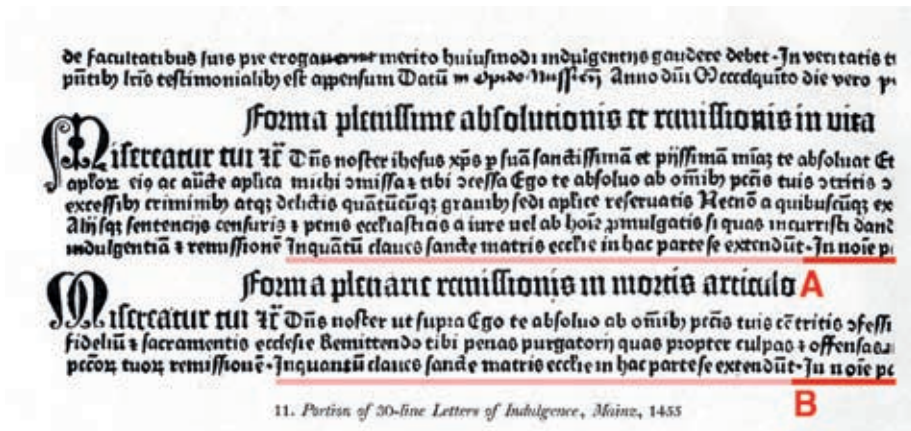 de facultatibus suis pie erogauerit merito huiusmodi indulgentijs gaudere debet · In veritatis t
pñtib᷒ lr̃is testimonialib᷒ est appensum Datũ Anno dñi Mccccl quito die vero
Forma plenissime absolutionis et remissionis in vita
Misereatur tui ⁊c̃ Dñs noster ihesus xp̃s p suã sanctissimã et pijssimã miãʒ te absoluat Et
aplor̃ꝝ eiꝰ ac aũcte aplica michi ↄmissa ⁊ tibi ↄcessa Ego te absoluo ab om̃ib᷒ pctĩs tuis ↄtritis ↄ
excessib᷒ criminib᷒ atqʒ delictis quãtũcũqʒ grauib᷒ sedi aplice reseruatis Necnõ a quibuscũqʒ ex
Alijsqʒ sentencijs censuris ⁊ penis eccĩasticis a iure uel ab hoĩe ꝓmulgatis si quas incurristi dand
indulgentiã ⁊ remissionẽ Inquãtũ claues sancte matris ecc̃lie in hac parte se extendũt · In noĩe p
Forma plenarie remissionis in mortis articulo A
Misereatur tui ⁊c̃ Dñs noster ut supra Ego te absoluo ab om̃ib᷒ pctĩs tuis cõtritis ↄfessi
fideliũ ⁊ sacramentis ecclesie Remittendo tibi penas purgatorij quas propter culpas ⁊ offensas
pcc̃oꝝ tuoꝝ remissionẽ · Inquantũ claues sancte matris ecc̃lie in hac parte se extendũt · In noĩe p
11. Portion of 30-line Letters of Indulgence, Mainz, 1455
B